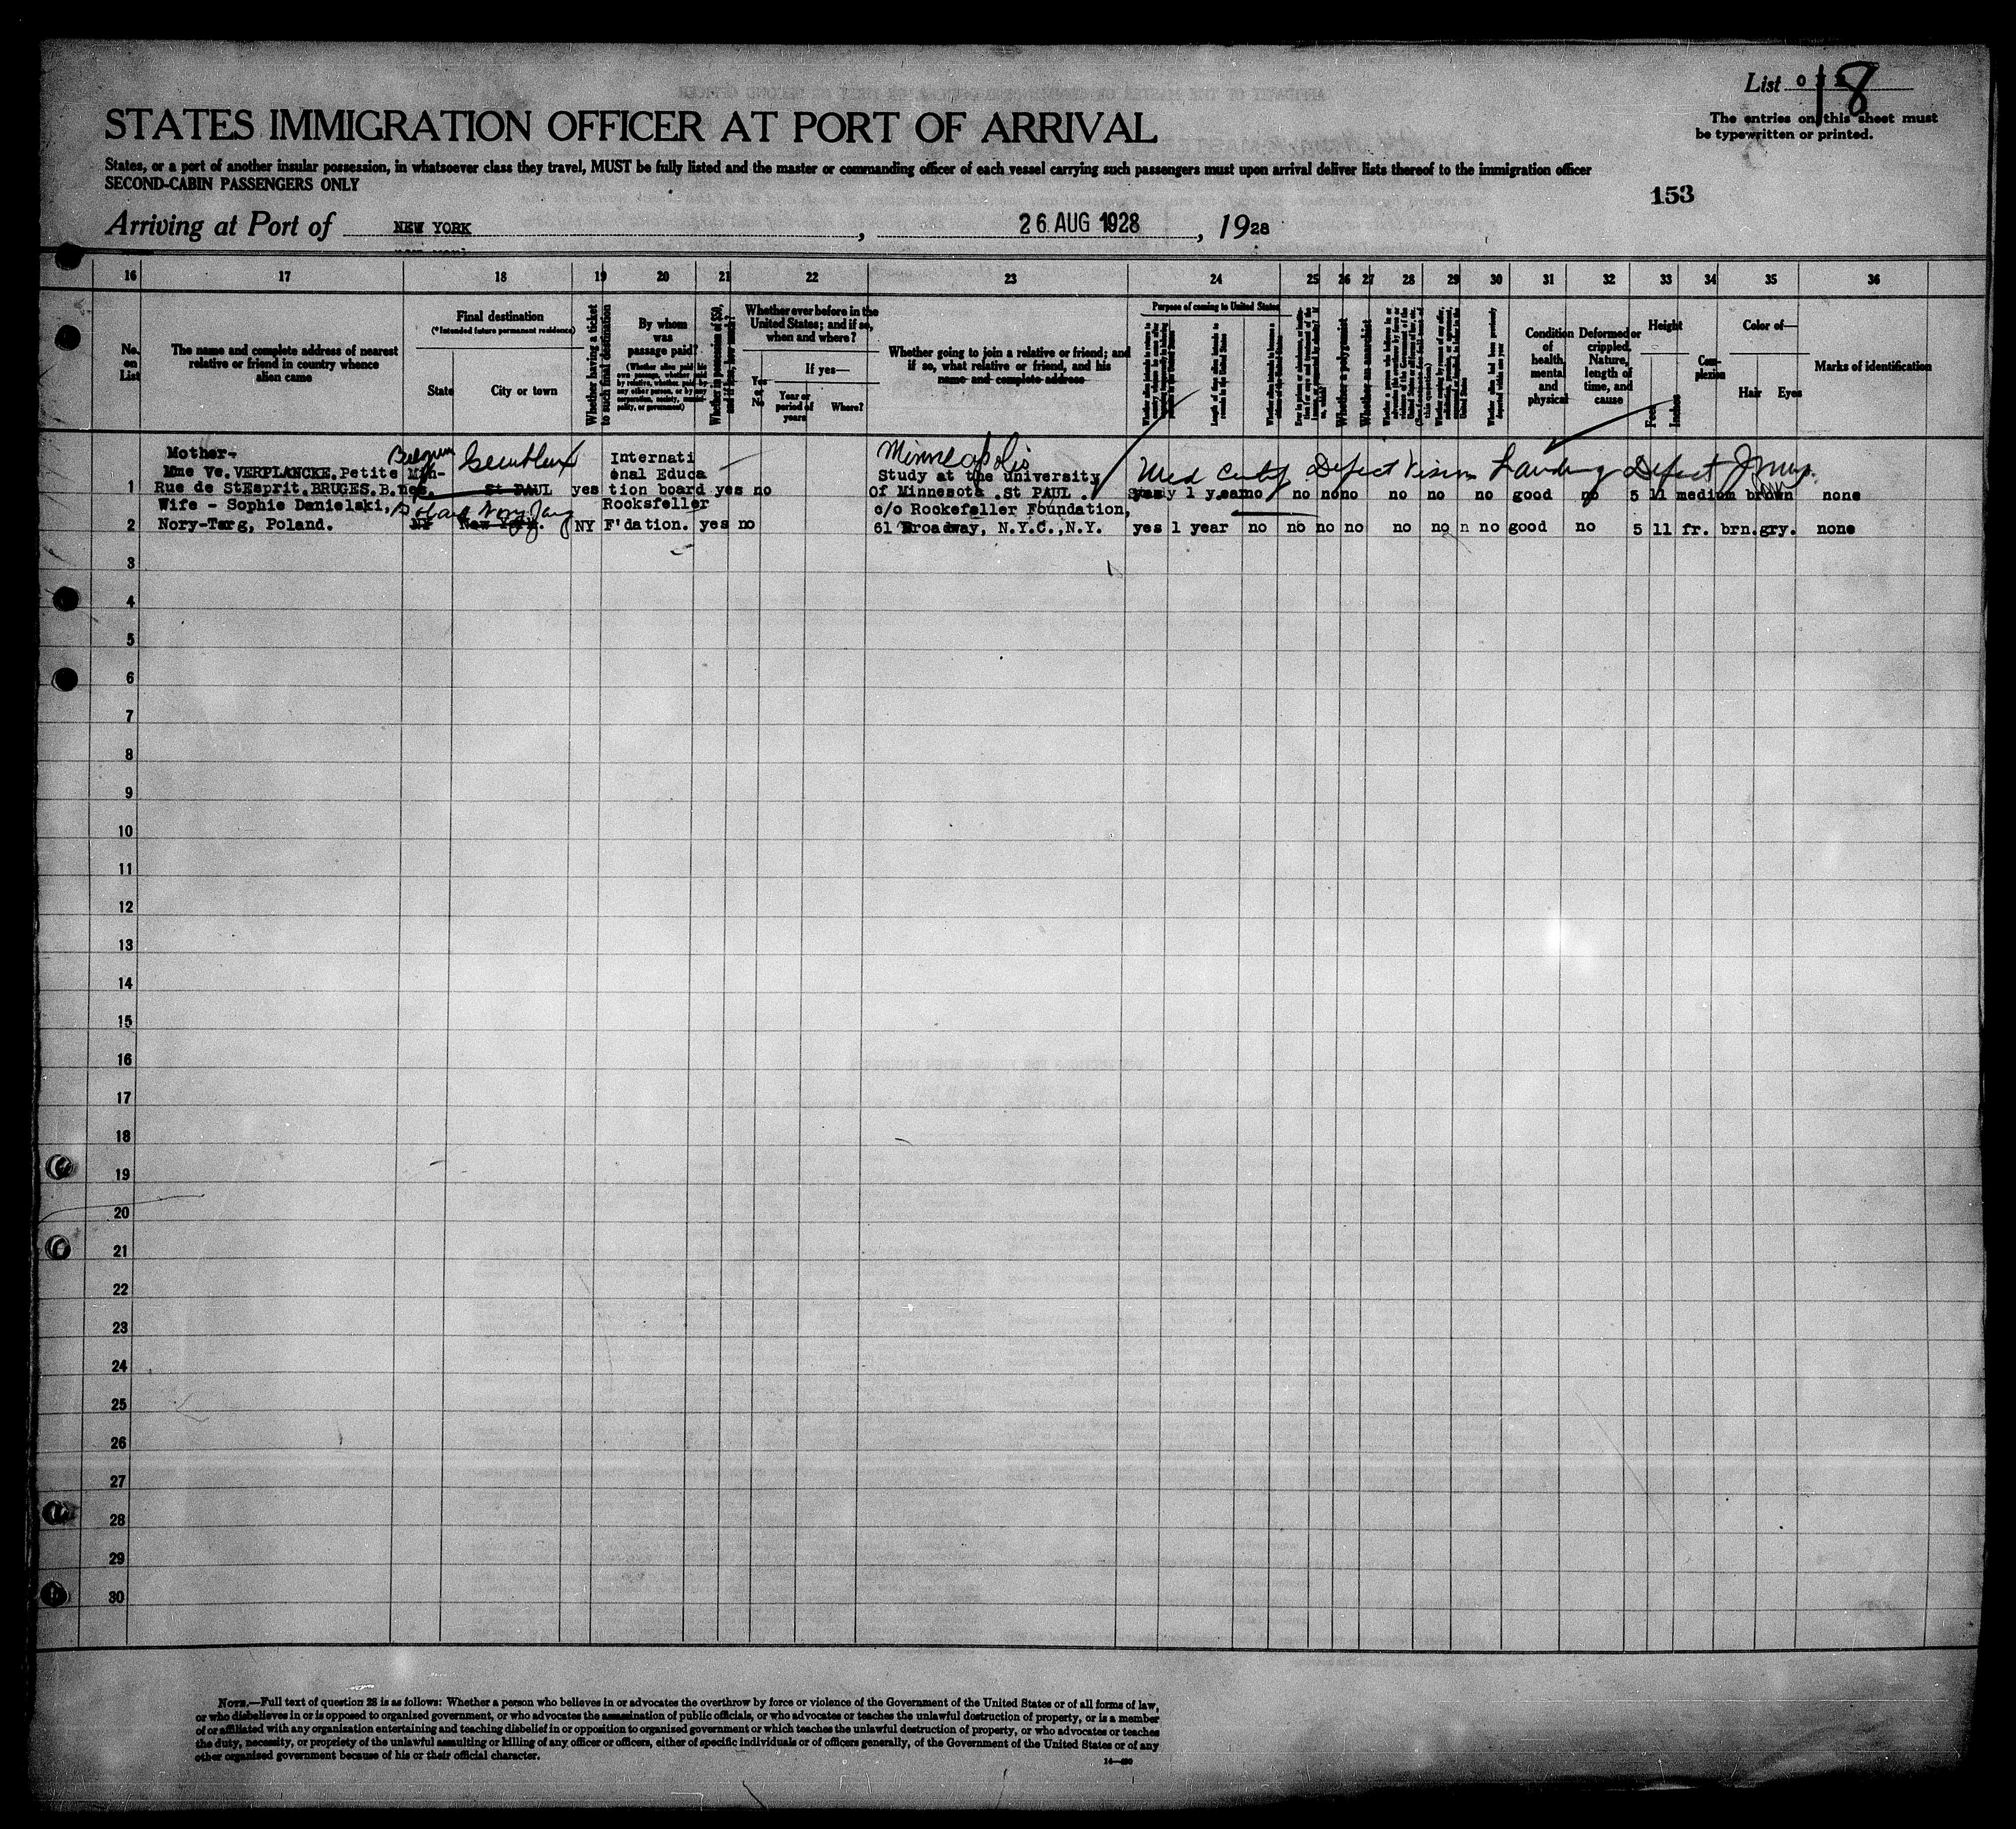 List 18
STATES IMMIGRATION OFFICER AT PORT OF ARRIVAL
The entries on this sheet must
be typewritten or printed.
States, or a port of another insular possession, in whatsoever class they travel, MUST be fully listed and the master or commanding officer of each vessel carrying such passengers must upon arrival deliver lists thereof to the immigration officer
SECOND-CABIN PASSENGERS ONLY
153
Arriving at Port of NEW YORK, 26 AUG 1928, 1928
16 17 18 19 20 21 22 23 24 25 26 27 28 29 30 31 32 33 34 35 36
No.
on
List
The name and complete address of nearest
relative or friend in country whence
alien came
Final destination
(*Intended future permanent residence)
State City or town
Whether having a ticket
to such final destination
By whom
was
passage paid?
Whether in possession of $50,
and if less, how much?
Whether ever before in the
United States; and if so,
when and where?
Yes
or
No
If yes—
Year or
period of
years
Where?
Whether going to join a relative or friend; and
if so, what relative or friend, and his
name and complete address
Purpose of coming to United States
Length of time alien intends to
remain in the United States
Whether a polygamist
Whether an anarchist
Condition
of
health,
mental
and
physical
Deformed or
crippled.
Nature,
length of
time, and
cause
Height
Feet Inches
Com-
plexion
Color of—
Hair Eyes
Marks of identification
Mother- Belgium Minneapolis
Mme Ve. VERPLANCKE.Petite Internati
enal Educa Study at the university Med Defect Vision Defect
1 Rue de StEsprit.BRUGES.B. St PAUL yes tion board yes no of Minnesota .St PAUL . 1 year no no no no no no no good no 5 11 medium brown none
Wife - Sophie Danielski, Poland Rocksfeller c/o Rockefeller Foundation,
2 Nory-Targ, Poland. NY New York. NY F'dation. yes no 61 Broadway, N.Y.C.,N.Y. yes 1 year no no no no no no n no good no 5 11 fr. brn.gry. none
3
4
5
6
7
8
9
10
11
12
13
14
15
16
17
18
19
20
21
22
23
24
25
26
27
28
29
30
NOTE.—Full text of question 28 is as follows: Whether a person who believes in or advocates the overthrow by force or violence of the Government of the United States or of all forms of law,
or who disbelieves in or is opposed to organized government, or who advocates the assassination of public officials, or who advocates or teaches the unlawful destruction of property, or is a member
of or affiliated with any organization entertaining and teaching disbelief in or opposition to organized government or which teaches the unlawful destruction of property, or who advocates or teaches
the duty, necessity, or propriety of the unlawful assaulting or killing of any officer or officers, either of specific individuals or of officers generally, of the Government of the United States or of any
other organized government because of his or their official character.